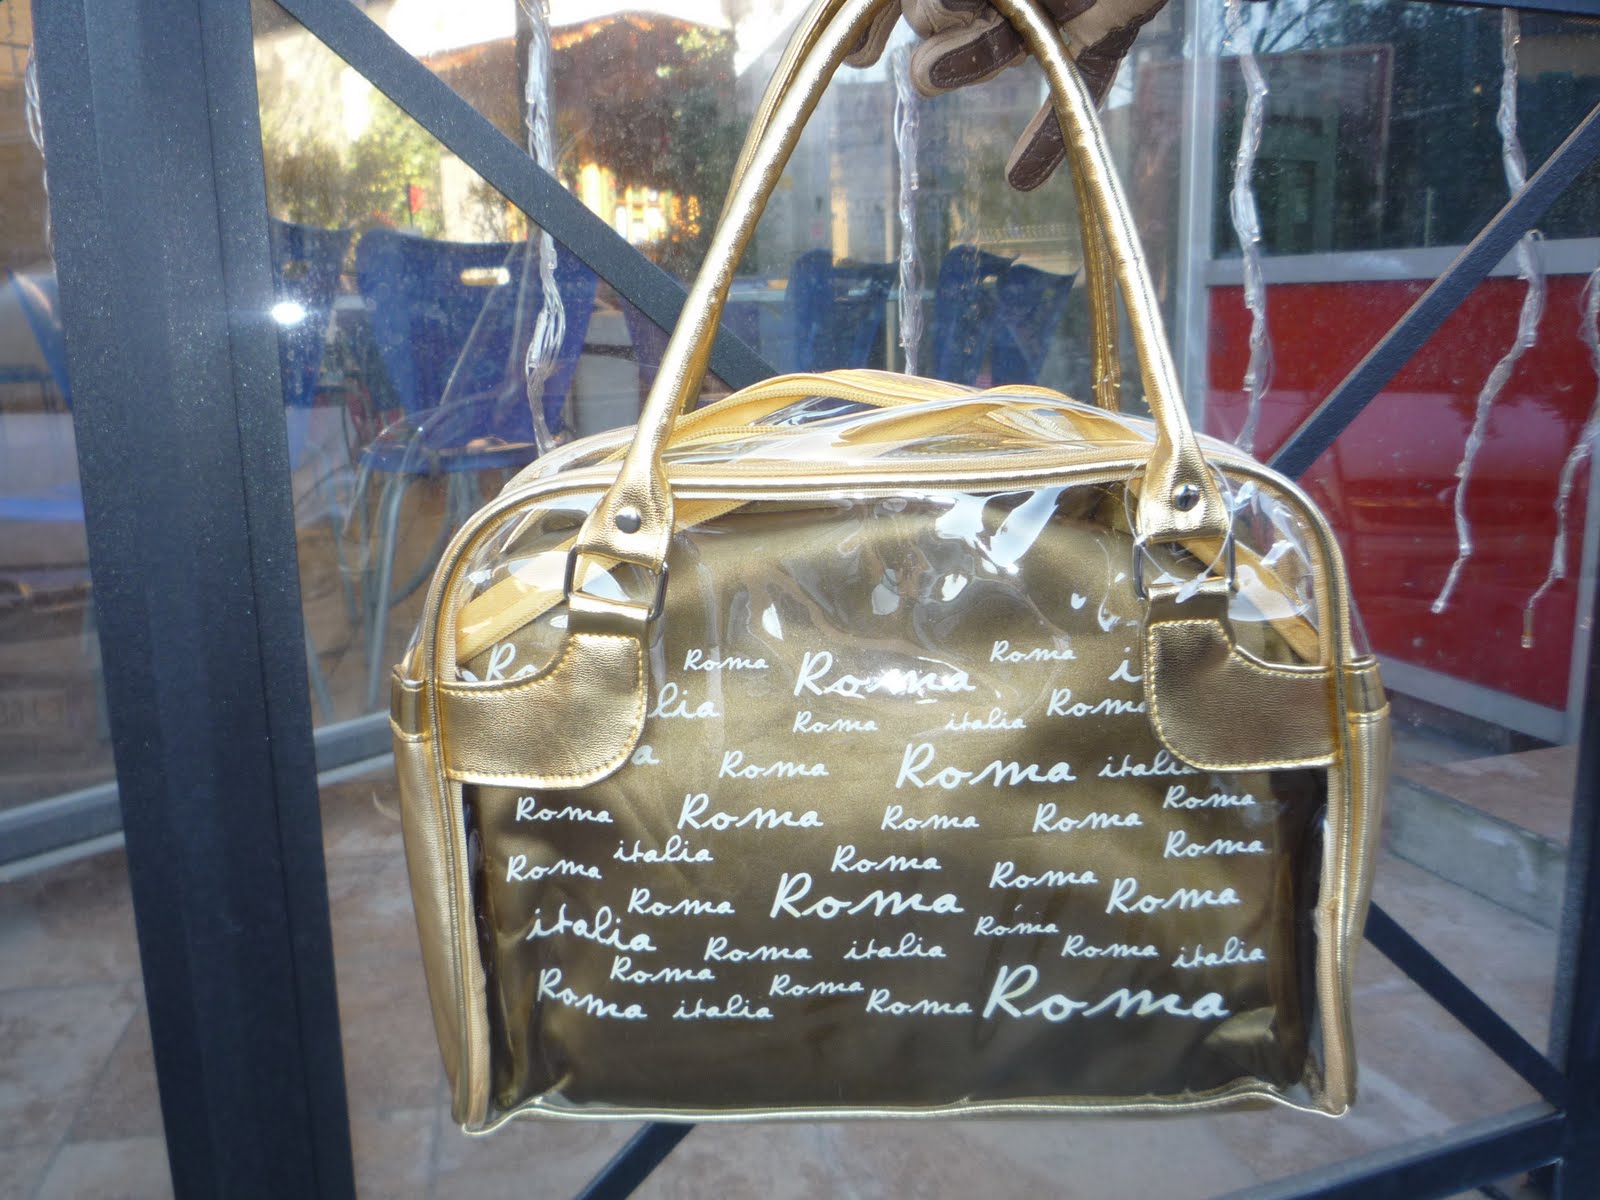 Roma Roma Roma
Roma italia Roma
Roma Roma italia
Roma Roma Roma Roma Roma
italia Roma Roma
Roma Roma Roma Roma Roma
italia Roma italia Roma Roma italia
Roma Roma
Roma italia Roma Roma